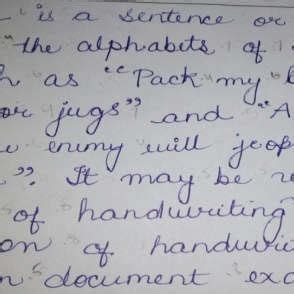 is a sentence or
the alphabets of
as "Pack my
jugs" and "A
enemy will jeop
". It may be
of handwriting
of handwri
document exa